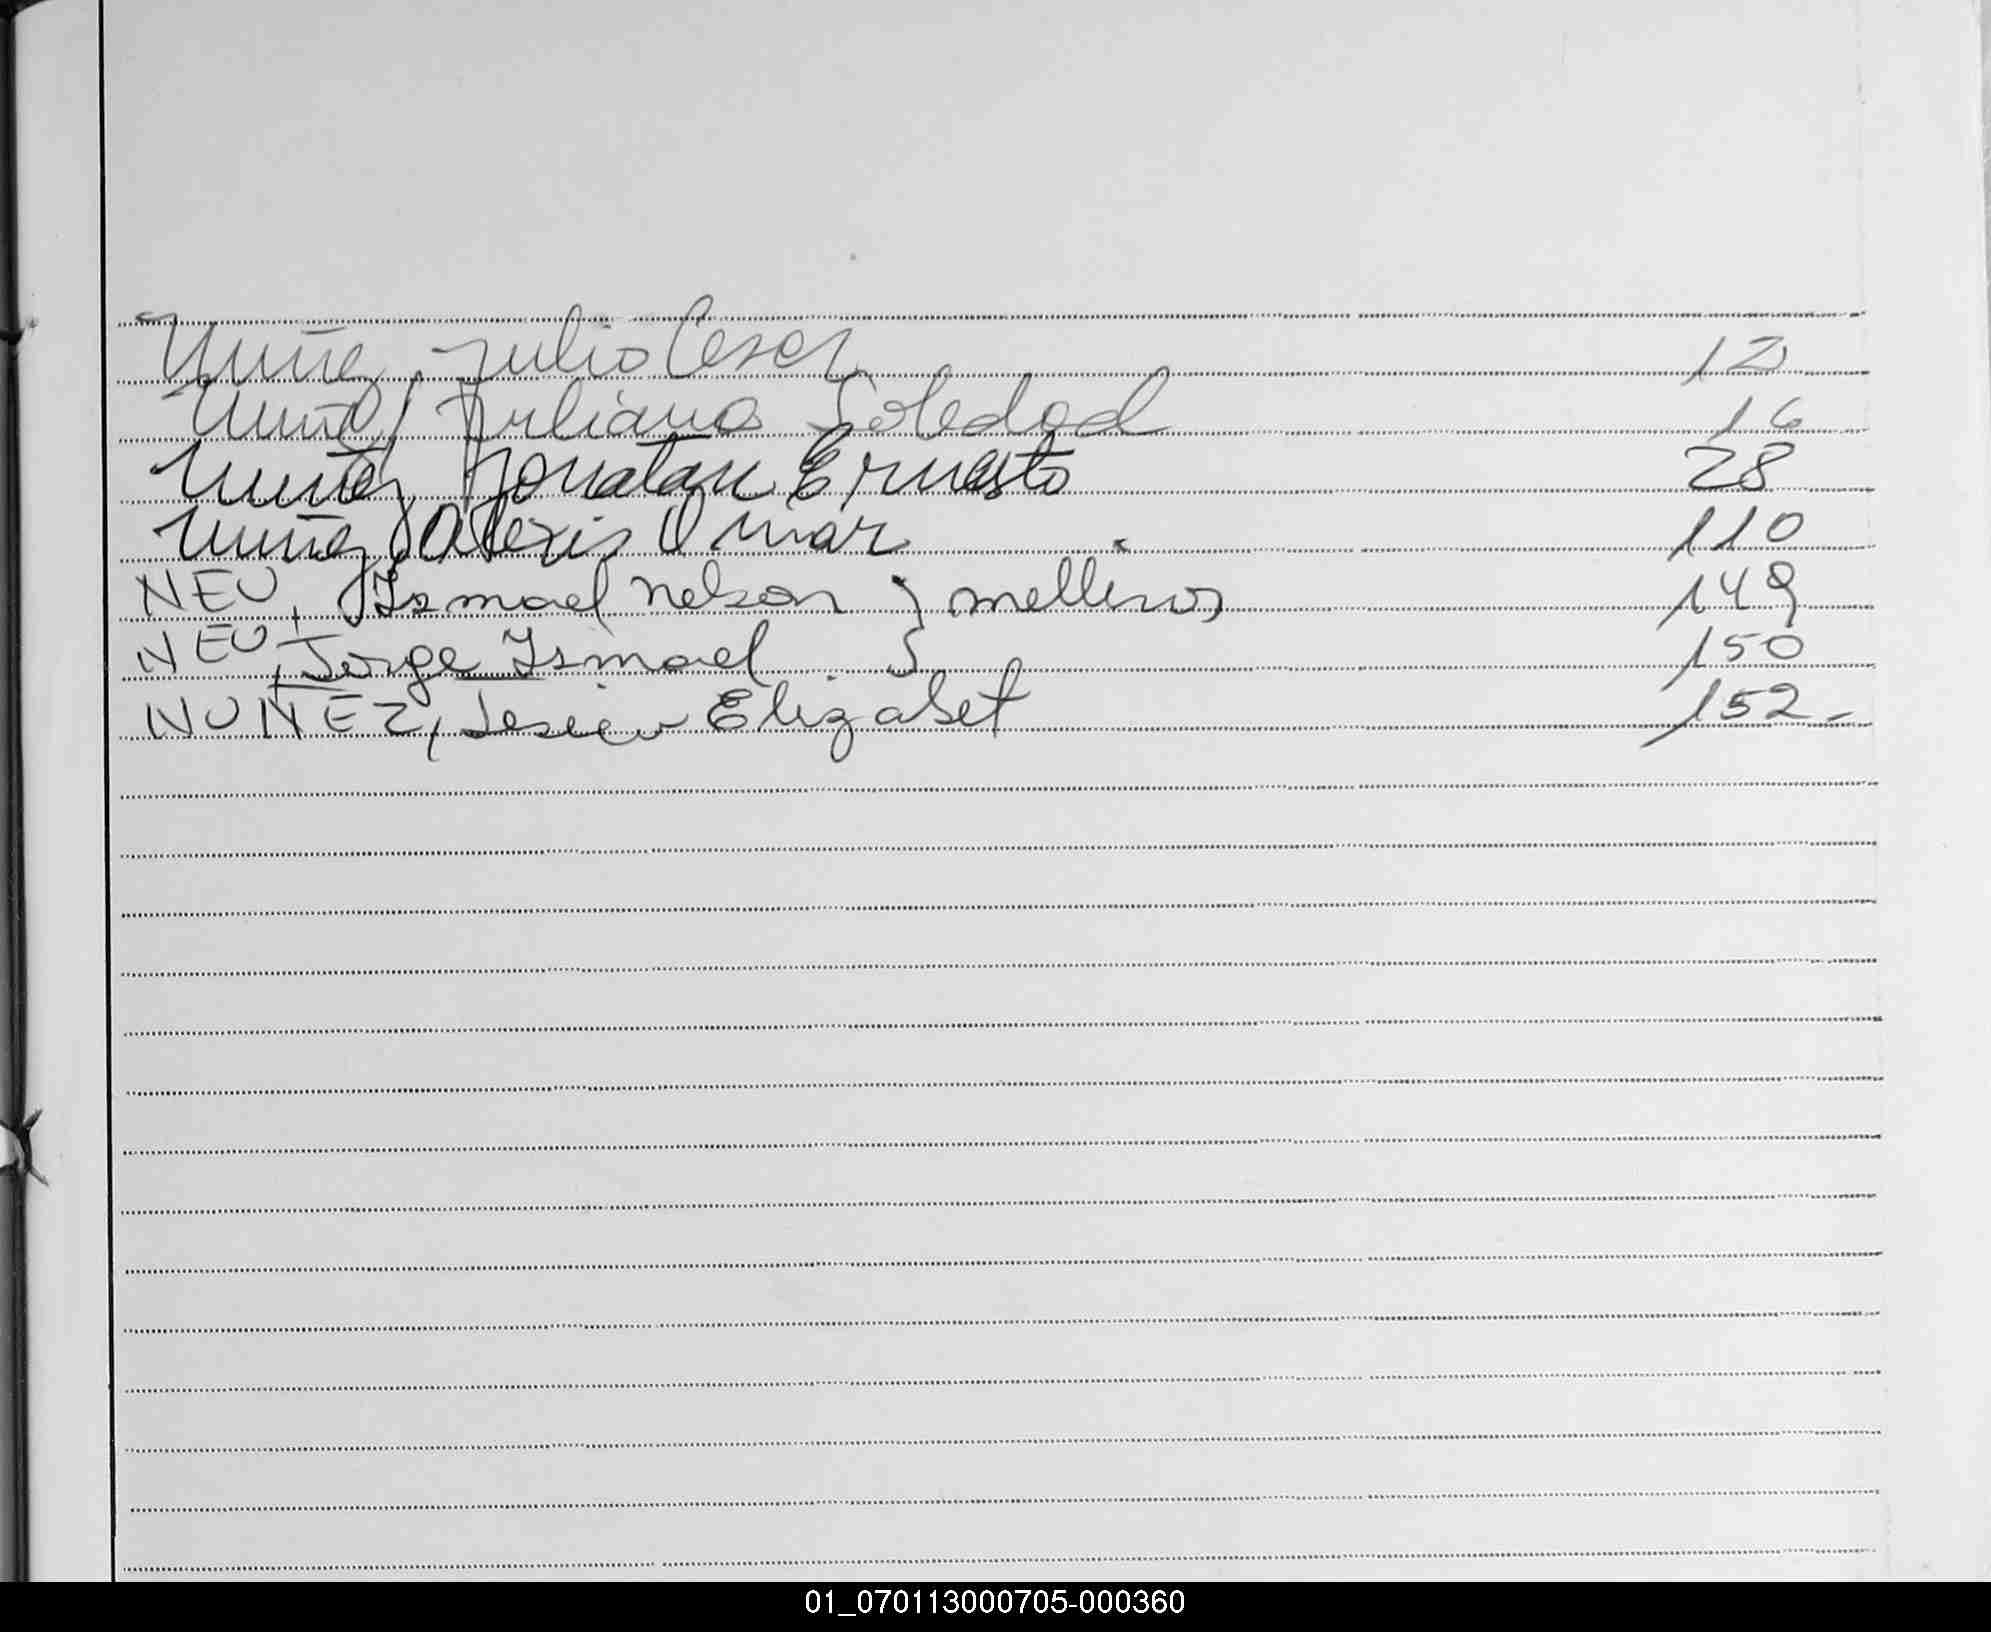 Nuñez, Julio Cesar 12
Nuñez, Juliana Soledad 16
Nuñez, Jonatan Ernesto 28
Nuñez, Alexis Omar 110
NEU, Ismael Nelson } mellizos 149
NEU, Jorge Ismael 150
NUÑEZ, Jesica Elizabet 152-
01_070113000705-000360